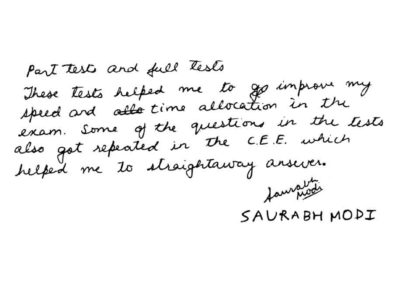 Part tests and full tests
These tests helped me to go improve my
speed and allo time allocation in the
exam. Some of the questions in the tests
also got repeated in the C.E.E. which
helped me to straightaway answer.
Saurabh
Modi
SAURABH MODI